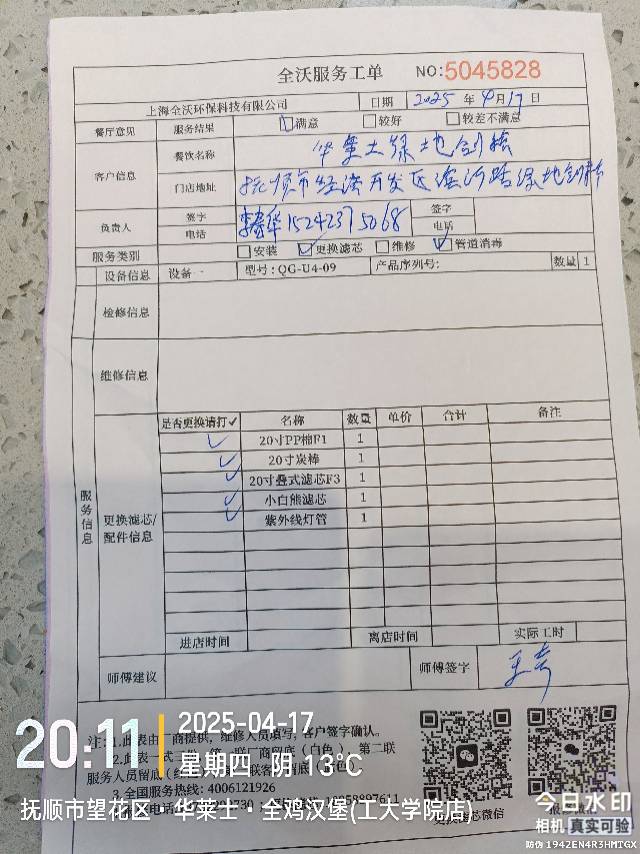 全沃服务工单 NO:5045828
上海全沃环保科技有限公司 日期 2025 年 4 月 17 日
餐厅意见 服务结果 满意 较好 较差不满意
客户信息 餐饮名称 华莱士绿地剑桥
门店地址 抚顺市经济开发区滨河路绿地剑桥
负责人 签字 电话 15242375068 签字 电话
服务类别 安装 更换滤芯 维修 管道消毒
设备信息 设备 型号:QG-U4-09 产品序列号: 数量 1
检修信息
维修信息
服务信息
更换滤芯/配件信息
是否更换请打✓ 名称 数量 单价 合计 备注
✓ 20寸PP棉F1 1
✓ 20寸炭棒 1
✓ 20寸叠式滤芯F3 1
✓ 小白熊滤芯 1
✓ 紫外线灯管 1
进店时间 离店时间 实际工时
师傅建议 师傅签字
注:1.此表由厂商提供,维修人员填写,客户签字确认。
2.此表一式三 第一联厂商留底(白色)、第二联
服务人员留底
3.全国服务热线:4006121926
更换滤芯微信 报修微信
20:11 2025-04-17
星期四 阴 13℃
抚顺市望花区·华莱士·全鸡汉堡(工大学院店)
今日水印
相机 真实可验
防伪 1942EN4R3HMTGX